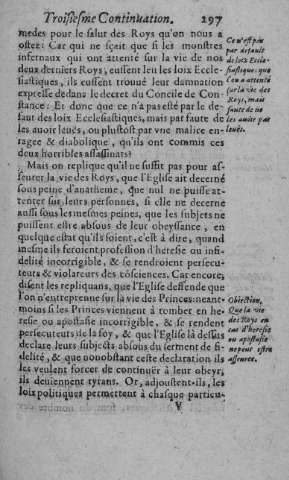 Troisiesme Continuation. 297
medes pour le salut des Roys qu'on nous a
oster: Car qui ne sçait que si les monstres
infernaux qui ont attenté sur la vie de nos
deux derniers Roys, eussent leu les loix Eccle-
siastiques, ils eussent trouué leur damnation
expresse dedans le decret du Concile de Con-
stance: Et donc que ce n'a pas esté par le de-
faut des loix Ecclesiastiques, mais par faute de
les auoir leuës, ou plustost par vne malice en-
ragée & diabolique, qu'ils ont commis ces
deux horribles assassinats?
Ce n'est pas
par default
de loix Eccle
siastiques que
l'on a attenté
sur la vie des
Roys, mais
faute de ne
les auoir pas
leuës.
Mais on replique qu'il ne suffit pas pour as-
seurer la vie des Roys, que l'Eglise ait decerné
sous peine d'anatheme, que nul ne puisse at-
tenter sur leurs personnes, si elle ne decerne
aussi sous les mesmes peines, que les subjets ne
puissent estre absous de leur obeyssance, en
quelque estat qu'ils soient, c'est à dire, quand
mesme ils feroient profession d'heresie ou infi-
delité incorrigible, & se rendroient persecu-
teurs & violateurs des cōsciences. Car encore,
disent les repliquans, que l'Eglise deffende que
l'on n'entreprenne sur la vie des Princes: neant-
moins si les Princes viennent à tomber en he-
resie ou apostasie incorrigible, & se rendent
persecuteurs de la foy, & que l'Eglise là dessus
declare leurs subjects absous du serment de fi-
delité, & que nonobstant ceste declaration ils
les veulent forcer de continuër à leur obeyr,
ils deuiennent tyrans. Or, adjoustent-ils, les
loix politiques permettent à chasque particu-
Obiection,
Que la vie
des Roys en
cas d'heresie
ou apostasie
ne peut estre
asseurée.
V